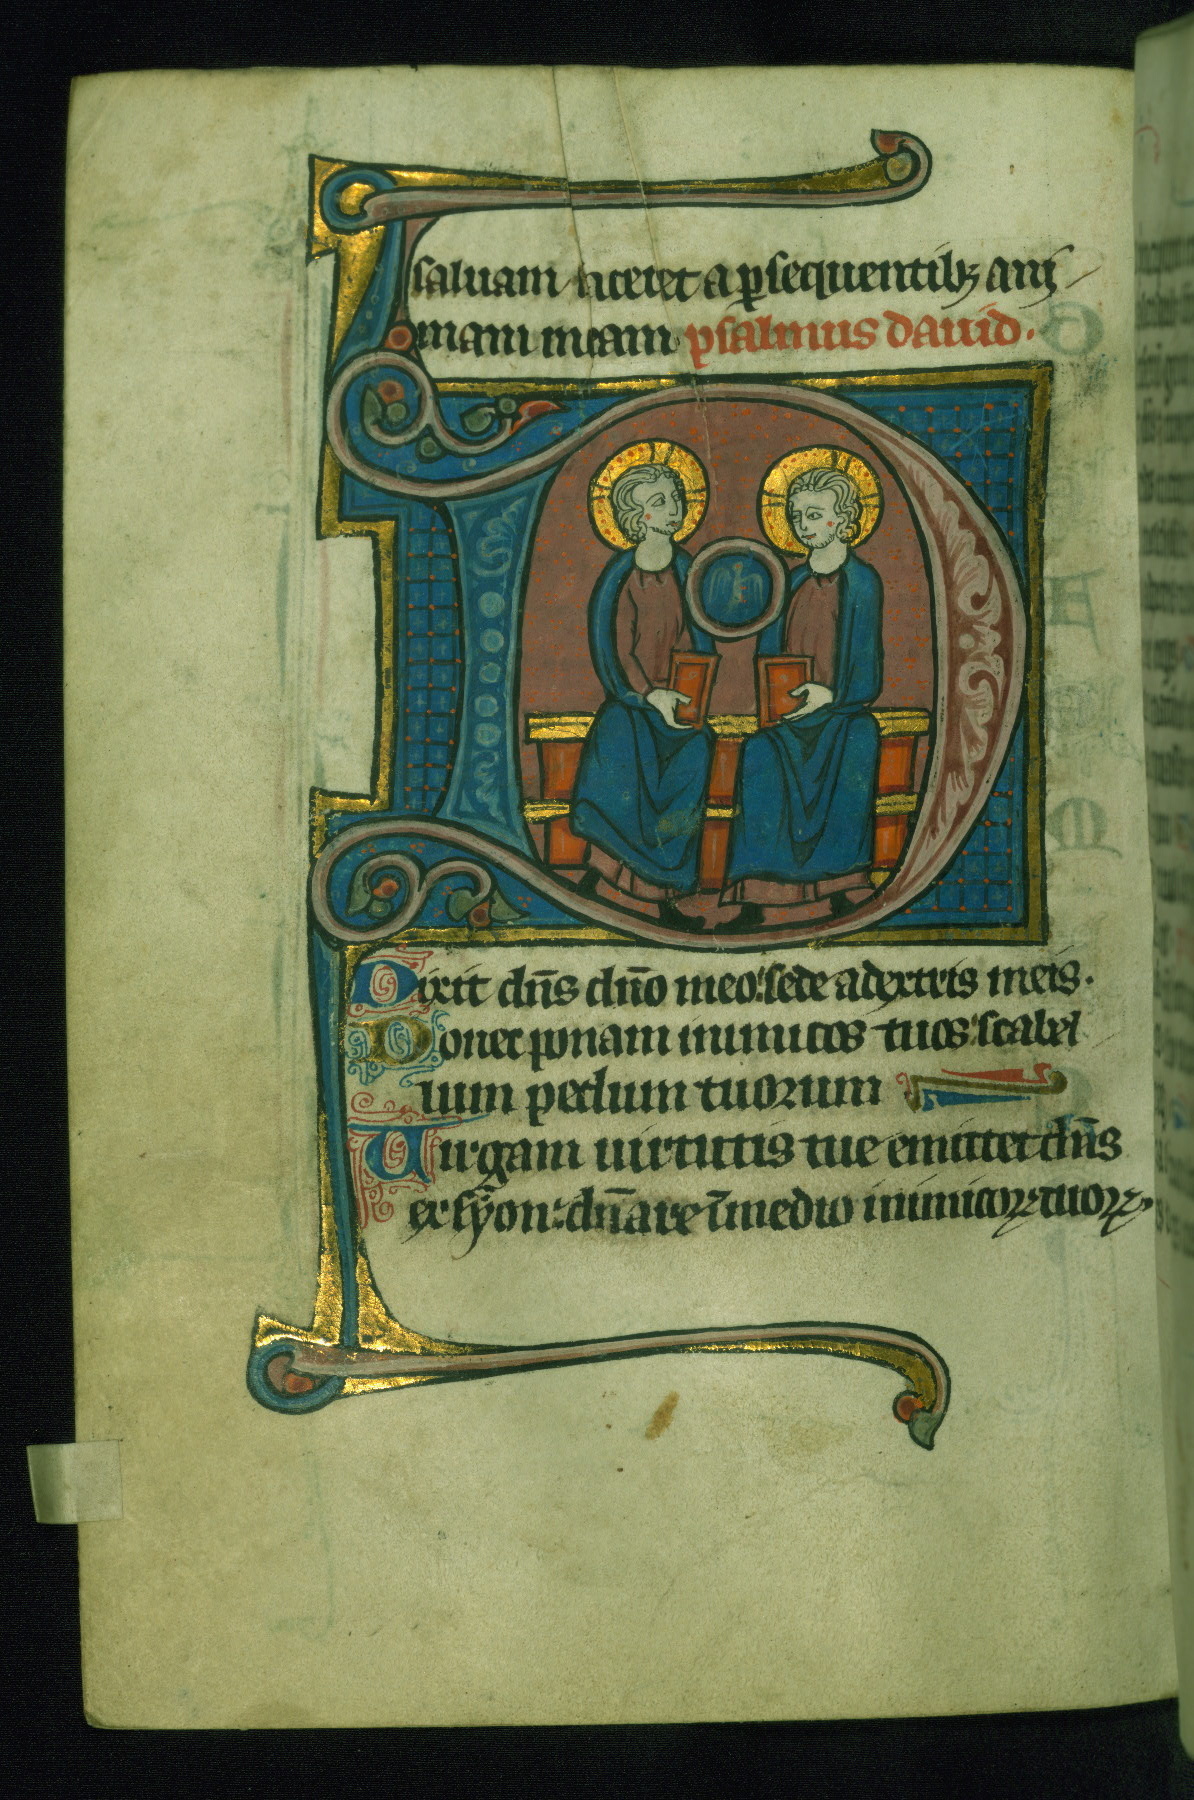 saluam faceret a ꝑsequentibꝫ ani
mam meam psalmus dauid.
Dixit dn̄s dn̄o meo: sede a dextris meis.
Donec ponam inimicos tuos: scabel
lum pedum tuorum
Uirgam uirtutis tue emittet dn̄s
ex syon: dn̄are ī medio inimicoꝝ tuoꝝ